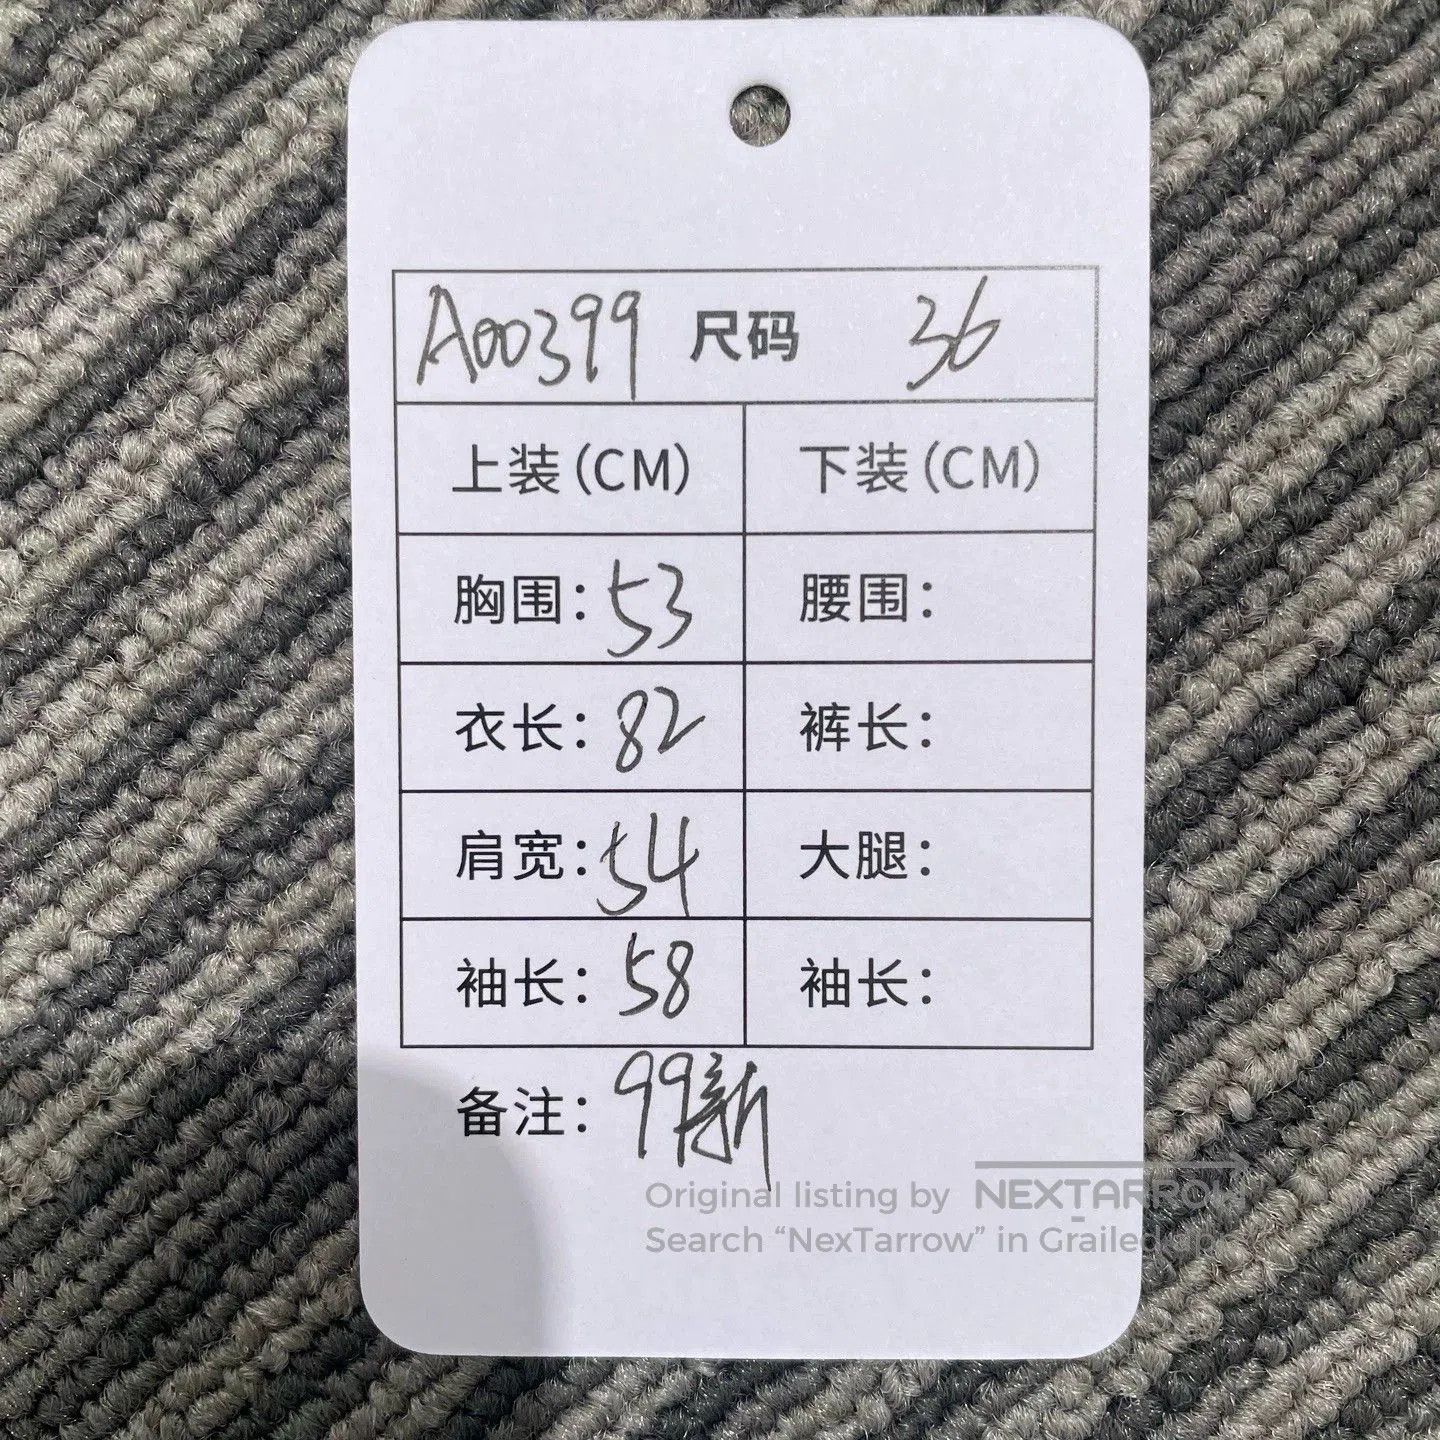 A00399 尺码 36
上装(CM) 下装(CM)
胸围: 53 腰围:
衣长: 82 裤长:
肩宽: 54 大腿:
袖长: 58 袖长:
备注: 99新
Original listing by NEXTARROW
Search “NexTarrow” in Grailed